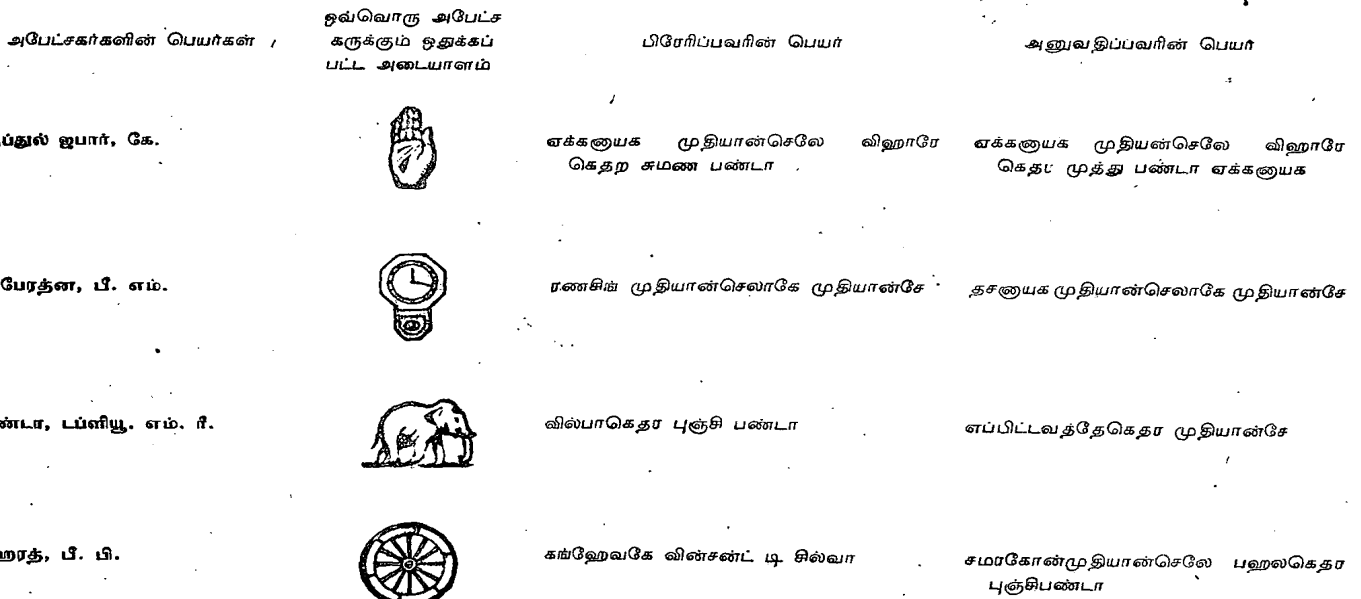 ஒவ்வொரு அபேட்ச
அபேட்சகர்களின் பெயர்கள்
கருக்கும் ஒதுக்கப்
பட்ட அடையாளம்
பிரேரிப்பவரின் பெயர்
அனுவதிப்பவரின் பெயர்
ப்துல் ஜபார், கே.
ஏக்கனாயக முதியான்செலே விஹாரே
கெதற சுமண பண்டா
ஏக்கனாயக முதியன்செலே விஹாரே
முத்து பண்டா ஏக்கனாயக
பேரத்ன, பீ. எம்.
ரணசிங் முதியான்செலாகே முதியான்சே
தசனாயக முதியான்செலாகே முதியான்சே
ண்டா, டப்ளியூ. எம். ரீ.
வில்பாகெதர புஞ்சி பண்டா
எப்பிட்டவத்தேகெதர முதியான்சே
ஹரத், பீ. பி.
கங்ஹேவகே வின்சன்ட் டி சில்வா
சமரகோன்முதியான்செலே பஹலகெதர
புஞ்சிபண்டா